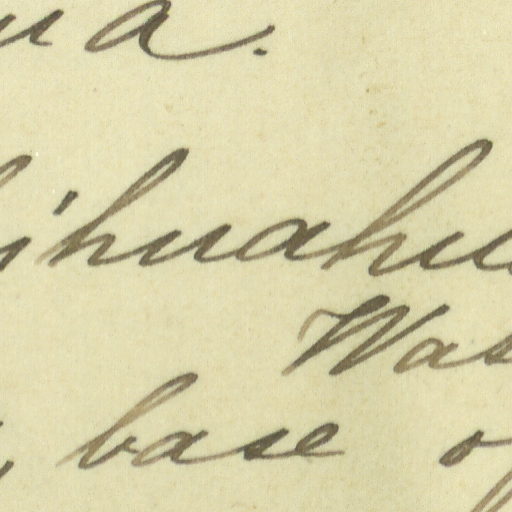 ua.
hihuahu
Was
, base of